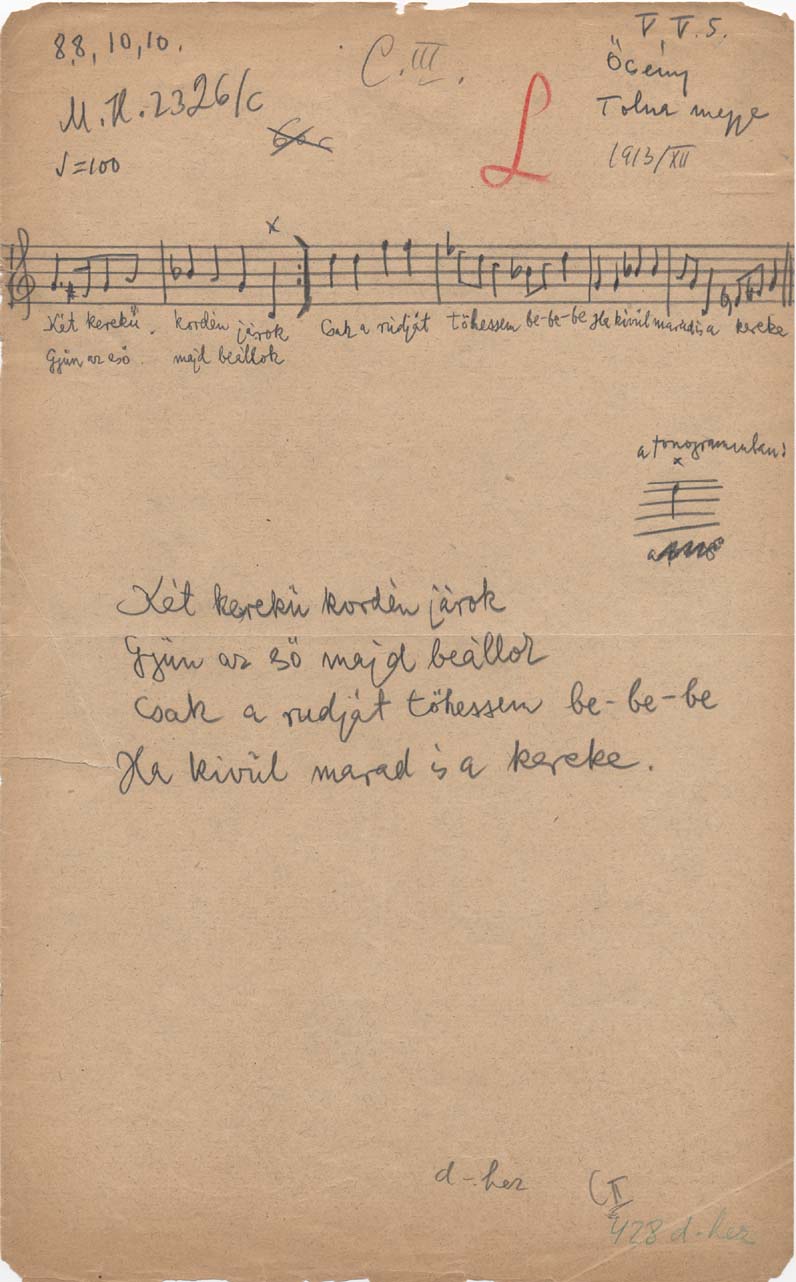 8,8, 10,10.
C.III.
V, V. 5.
Őcény
Tolna megye
1913/XII
M.H. 2326/c
♩=100
L
x
Két kerekű kordén járok Csak a rúdját töhessem be-be-be Ha kivül marad is a kereke
Gyün az eső majd beállok
a fonogrammban:
x
Két kerekü kordén járok
Gyün az eső majd beállok
Csak a rudját töhessem be-be-be
Ha kivül marad is a kereke.
d-hez
C II
428 d-hez